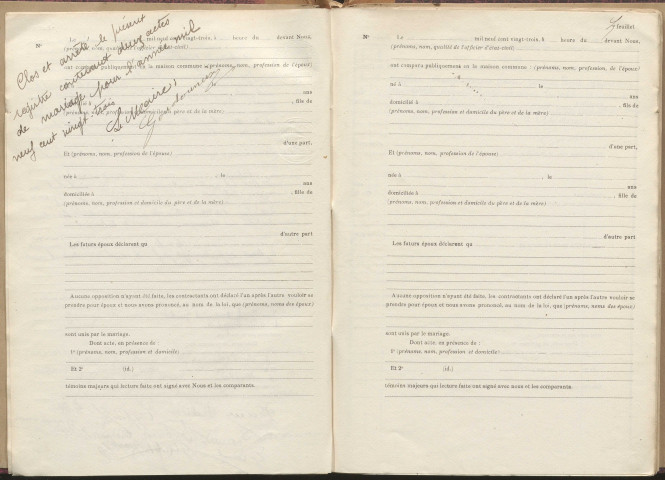 Clos et arrêté le présent
registre contenant deux actes
de mariage pour l'année mil
neuf cent vingt-trois
Le Maire,
Nº Le mil neuf cent vingt-trois, à heure du devant Nous,
(prénoms, nom, qualité de l'officier d'état-civil)
ont comparu publiquement en la maison commune : (prénoms, nom, profession de l'époux)
né à , le
ans
domicilié à , fils de
(prénoms, nom, profession et domicile du père et de la mère)
d'une part,
Et (prénoms, nom, profession de l'épouse)
née à , le
ans
domiciliée à , fille de
(prénoms, nom, profession et domicile du père et de la mère)
d'autre part
Les futurs époux déclarent qu
Aucune opposition n'ayant été faite, les contractants ont déclaré l'un après l'autre vouloir se
prendre pour époux et nous avons prononcé, au nom de la loi, que (prénoms, noms des époux)
sont unis par le mariage.
Dont acte, en présence de :
1º (prénoms, nom, profession et domicile)
Et 2º (id.)
témoins majeurs qui lecture faite ont signé avec Nous et les comparants.
feuillet
Nº Le mil neuf cent vingt-trois, à heure du devant Nous,
(prénoms, nom, qualité de l'officier d'état-civil)
ont comparu publiquement en la maison commune : (prénoms, nom, profession de l'époux)
né à , le
ans
domicilié à , fils de
(prénoms, nom, profession et domicile du père et de la mère)
d'une part,
Et (prénoms, nom, profession de l'épouse)
née à , le
ans
domiciliée à , fille de
(prénoms, nom, profession et domicile du père et de la mère)
d'autre part
Les futurs époux déclarent qu
Aucune opposition n'ayant été faite, les contractants ont déclaré l'un après l'autre vouloir se
prendre pour époux et nous avons prononcé, au nom de la loi, que (prénoms, noms des époux)
sont unis par le mariage.
Dont acte, en présence de :
1º (prénoms, nom, profession et domicile)
Et 2º (id.)
témoins majeurs qui lecture faite ont signé avec nous et les comparants.